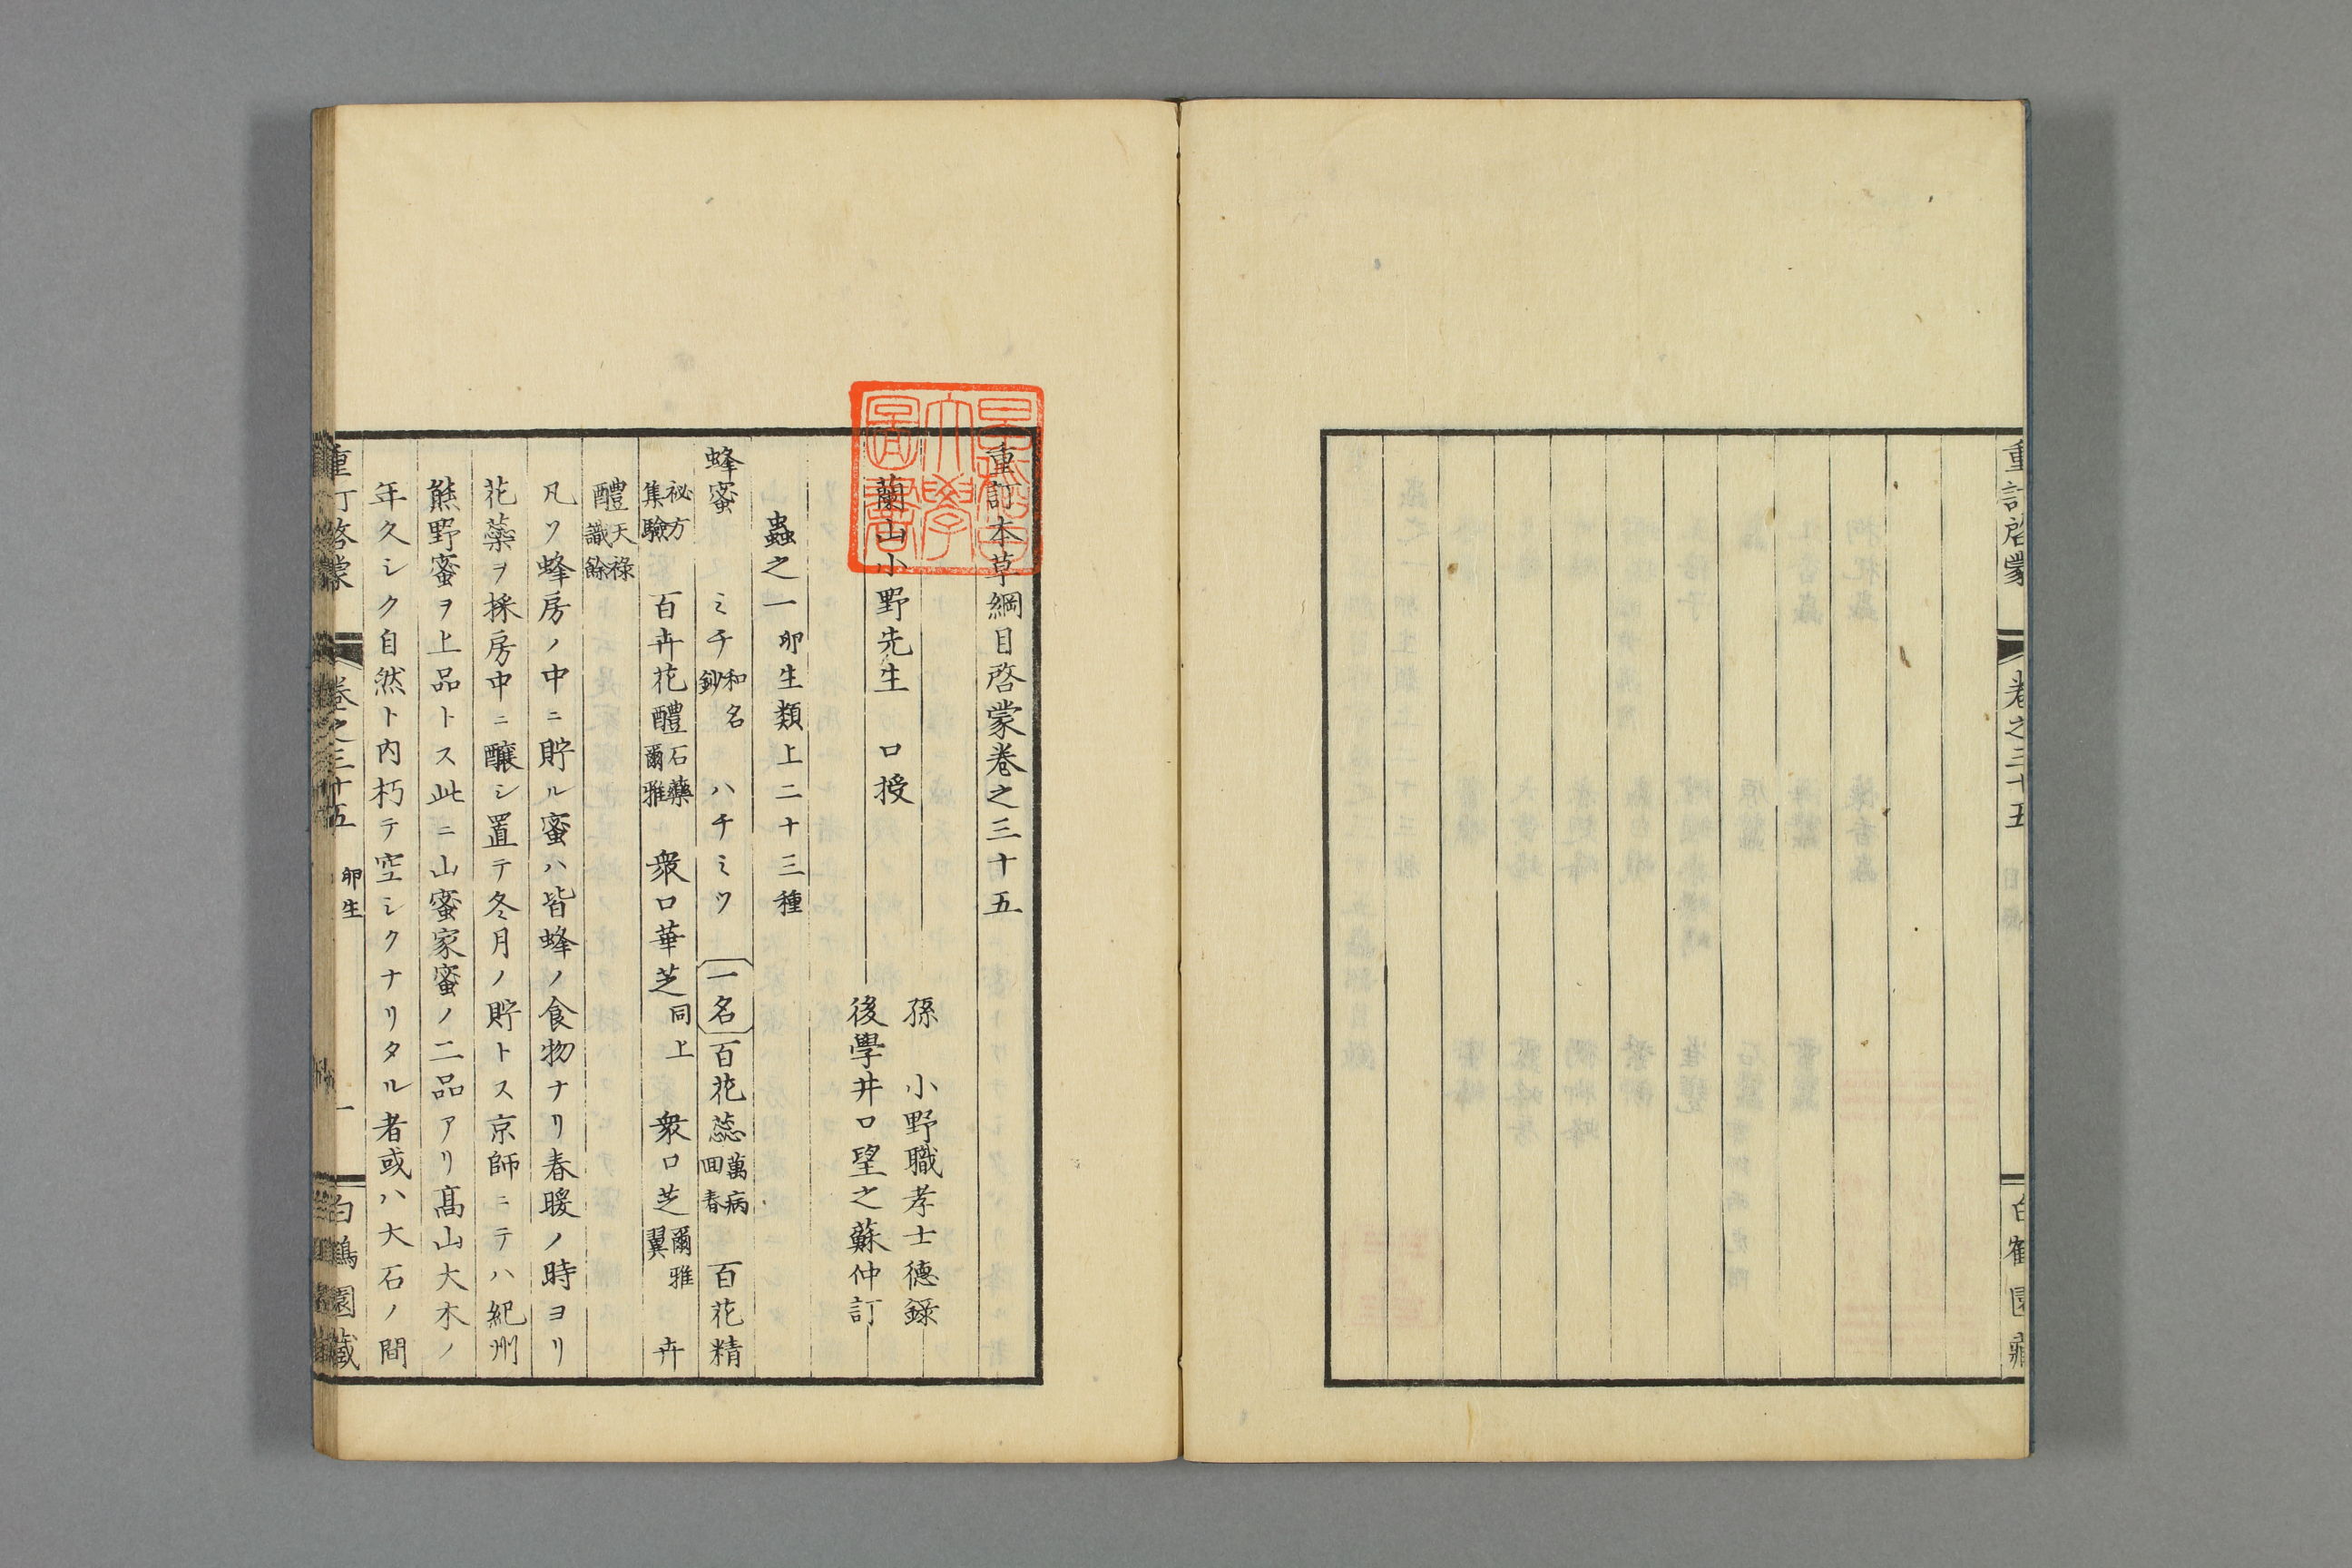 重訂啓蒙 卷之三十五 白鶴園藏
重訂本草綱目啓蒙卷之三十五
孫 小野職孝士德錄
蘭山小野先生 口授
後學井口望之蘇仲訂
蟲之一 卵生類上二十三種
蜂蜜 ミチ 和名鈔 ハチミツ 一名 百花蕊 萬病回春 百花精
祕方集驗 百卉花醴 石藥爾雅 衆口華芝 同上 衆口芝 爾雅翼 卉
醴 天祿識餘
凡ソ蜂房ノ中ニ貯ル蜜ハ皆蜂ノ食物ナリ春暖ノ時ヨリ
花蘂ヲ採房中ニ釀シ置テ冬月ノ貯トス京師ニテハ紀州
熊野蜜ヲ上品トス此ニ山蜜家蜜ノ二品アリ髙山大木ノ
年久シク自然ト内朽テ空シクナリタル者或ハ大石ノ間
重訂啓蒙 卷之三十五 卵生 一 白鶴園藏